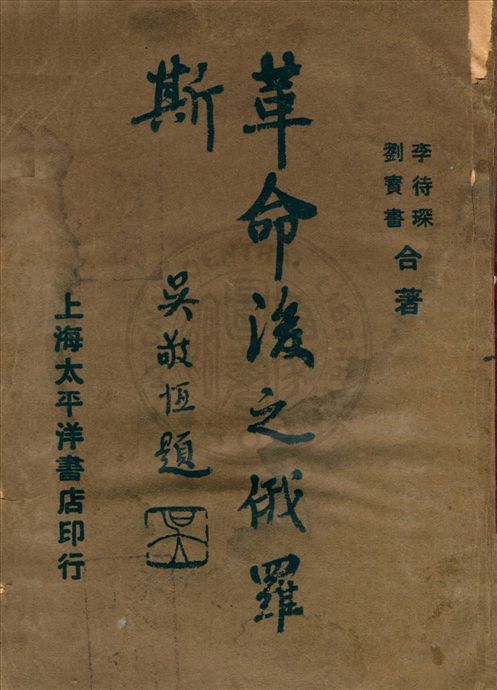 李待琛
劉寶書
合著
革命後之俄羅
斯
吳敬恆題
吳
上海太平洋書店印行